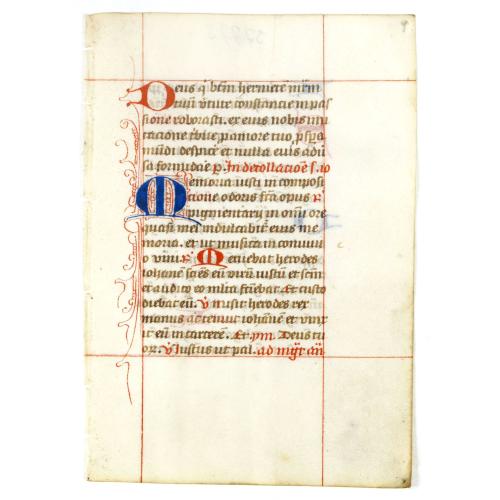 Deus q̇ btm̄ hermetē mr̄em
tuū ṽtute constancie in pas
sione roborasti. ex eius nobis mi
tacione t̾bue p amore tuo p̾spa
mūdi despicē et nulla eius adū
sa formidae p. In decollacioē s. io
Memoria iusti in composi
cione odoris fc̄a opus
pigmentarii in om̄i ore
quasi mel indulcabit̃ eius me
moria. et ut musica in conuiui
o vini. Metuebat herodes
iohanē sciēs eū virū iustū et scm̄
et audito eo m̄lta fīebat Et custo
diebat eū. V̇ misit herodes rex
manus ac tenuit iohānē et vinx
it eū in carcere. Et Deus tu
or. V̇ Iustus ut pal. ad mḡt an̄